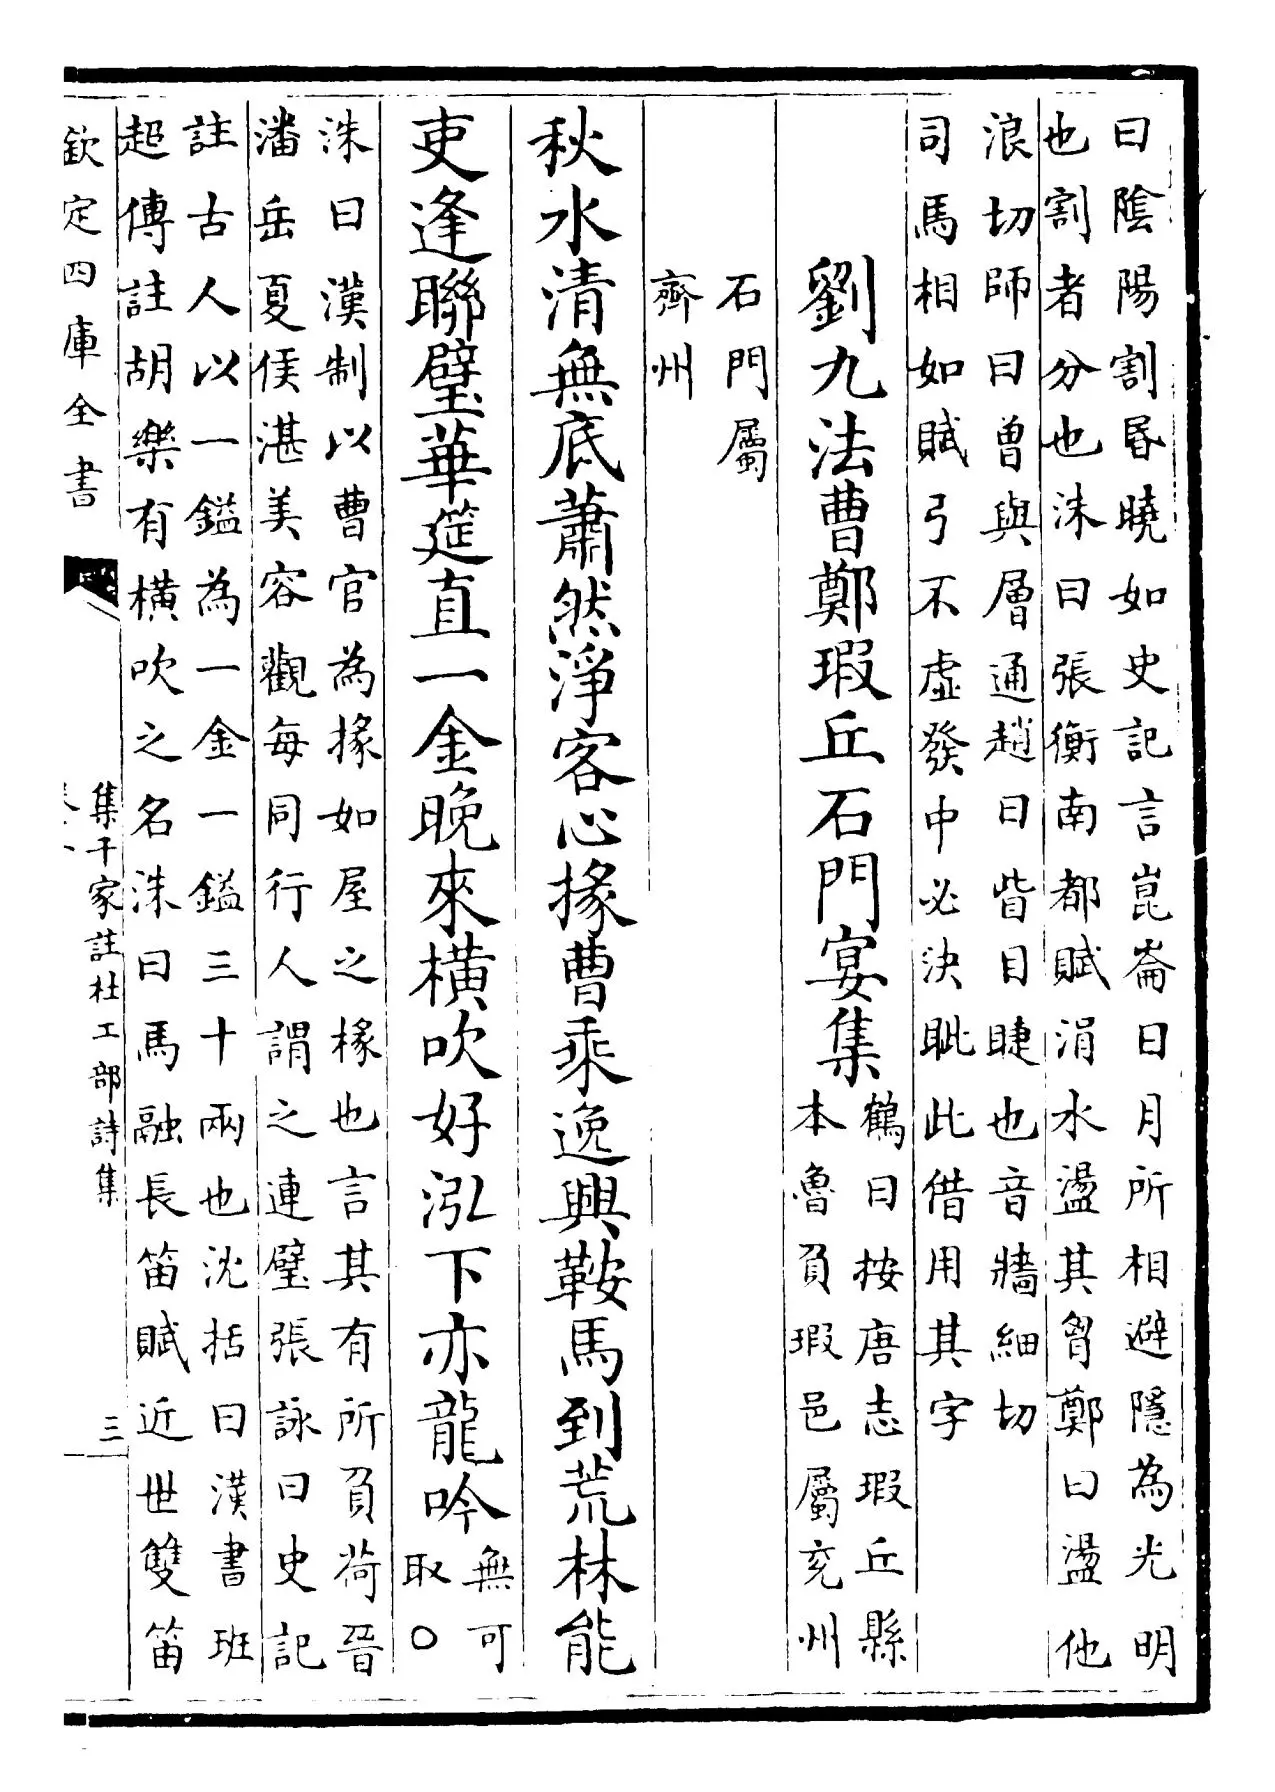 曰陰陽割昏曉如史記言崑崙日月所相避隱為光明
也割者分也洙曰張衡南都賦涓水盪其胷鄭曰盪他
浪切師曰曾與層通趙曰眥目睫也音牆細切
司馬相如賦弓不虛發中必決眦此借用其字
劉九法曹鄭瑕丘石門宴集
鶴曰按唐志瑕丘縣
本魯負瑕邑屬兗州
石門屬
齊州
秋水清無底蕭然淨客心掾曹乘逸興鞍馬到荒林能
吏逢聯璧華筵直一金晚來橫吹好泓下亦龍吟
無可
取○
洙曰漢制以曹官為掾如屋之椽也言其有所負荷晉
潘岳夏侯湛美容觀每同行人謂之連璧張詠曰史記
註古人以一鎰為一金一鎰三十兩也沈括曰漢書班
超傳註胡樂有橫吹之名洙曰馬融長笛賦近世雙笛
欽定四庫全書
集千家註杜工部詩集
三